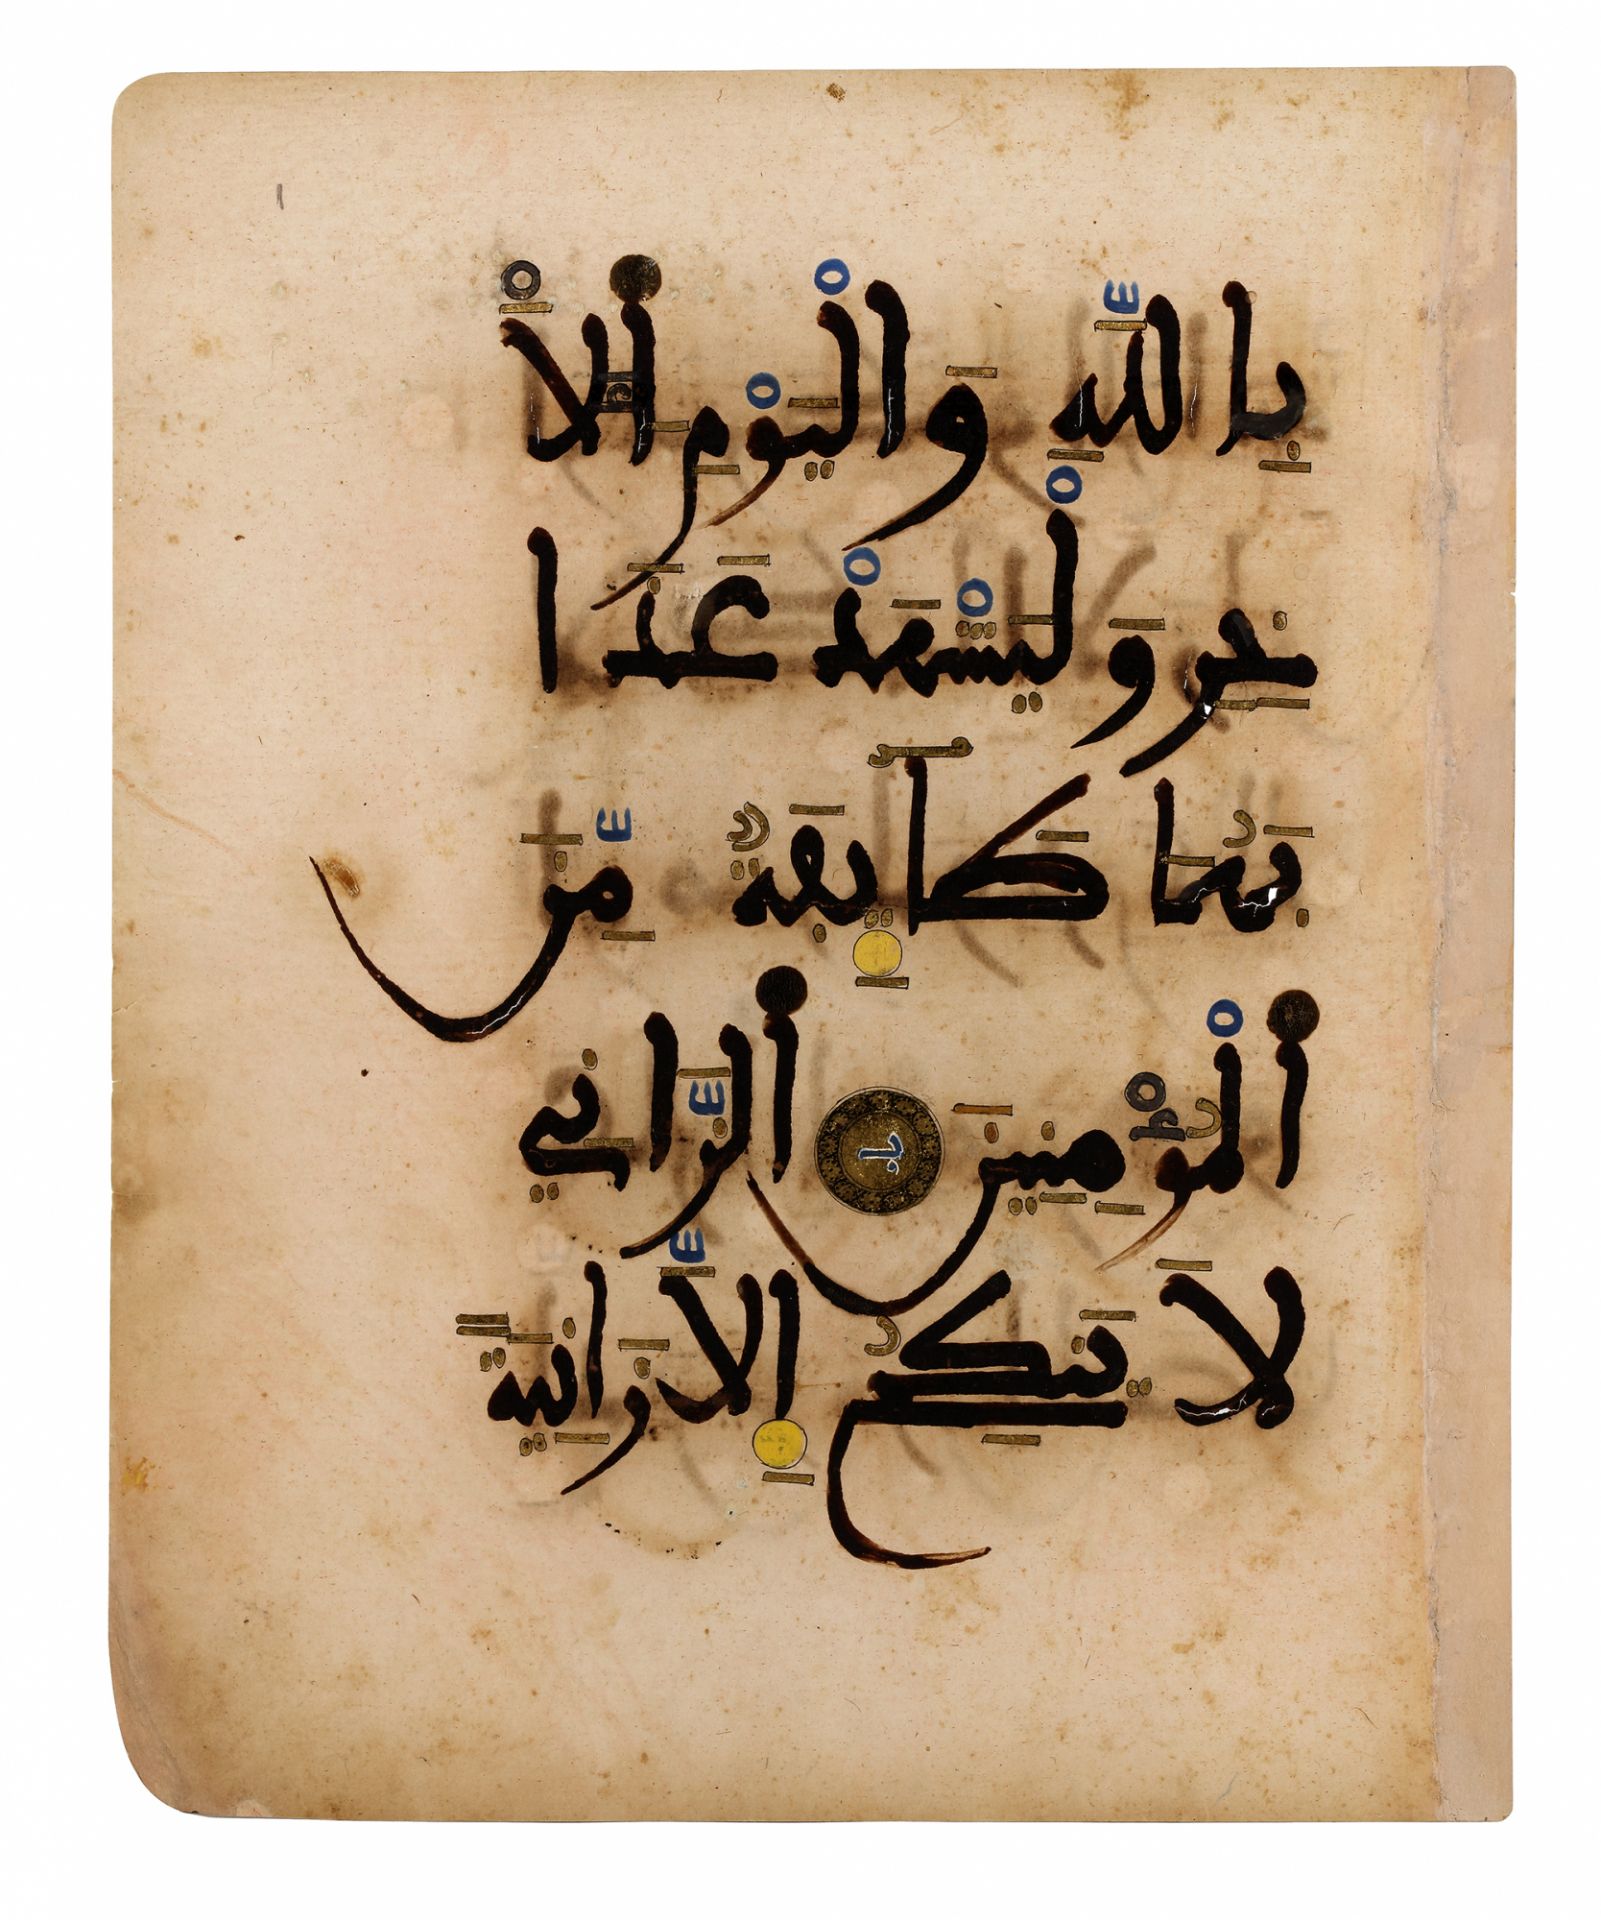 بِاللَّهِ وَالْيَوْمِ الْأَ
خِرِ وَلْيَشْهَدْ عَذَا
بَهُمَا طَآئِفَةٌ مِّنَ
الْمُؤْمِنِينَ ب الزَّانِي
لَا يَنكِحُ إِلَّا زَانِيَةً